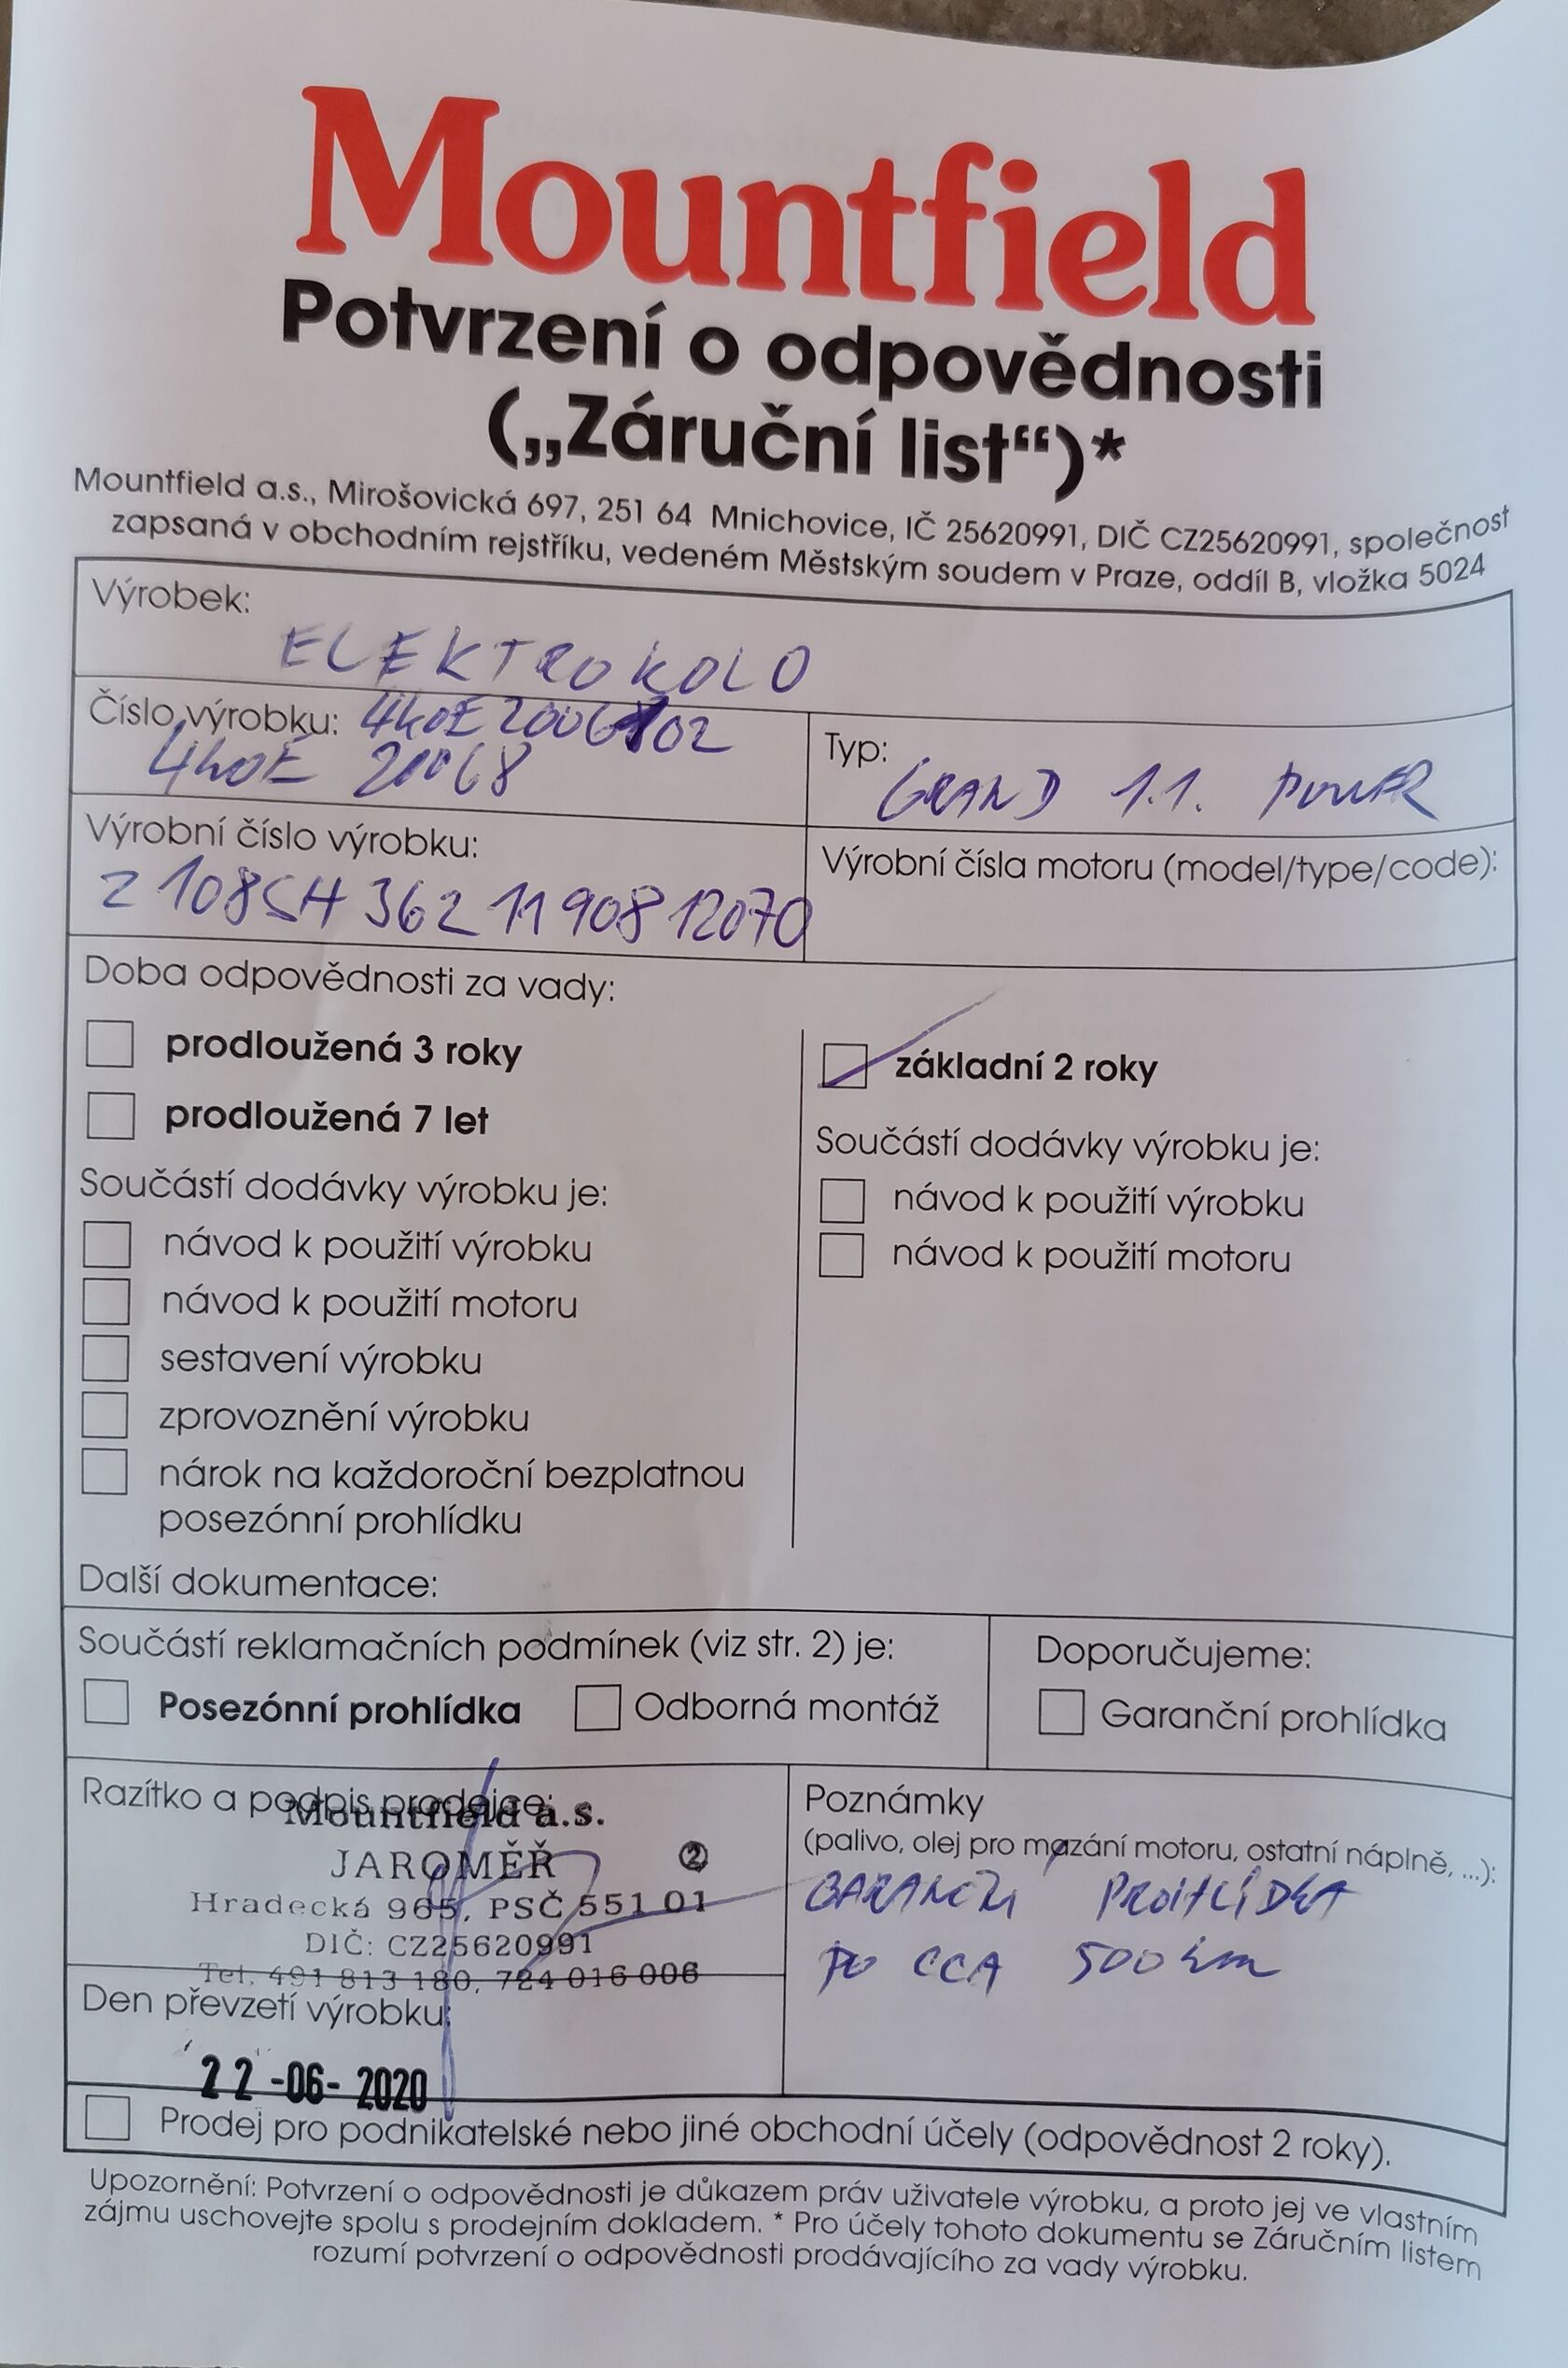 Mountfield
Potvrzení o odpovědnosti
(„Záruční list“)*
Mountfield a.s., Mirošovická 697, 251 64 Mnichovice, IČ 25620991, DIČ CZ25620991, společnost
zapsaná v obchodním rejstříku, vedeném Městským soudem v Praze, oddíl B, vložka 5024
Výrobek:
ELEKTROKOLO
Číslo výrobku:
4KOE 20068
Typ:
GRAND 1.1. POWER
Výrobní číslo výrobku:
Z108SH3621190812070
Výrobní čísla motoru (model/type/code):
Doba odpovědnosti za vady:
prodloužená 3 roky
prodloužená 7 let
Součástí dodávky výrobku je:
návod k použití výrobku
návod k použití motoru
sestavení výrobku
zprovoznění výrobku
nárok na každoroční bezplatnou
posezónní prohlídku
základní 2 roky
Součástí dodávky výrobku je:
návod k použití výrobku
návod k použití motoru
Další dokumentace:
Součástí reklamačních podmínek (viz str. 2) je:
Posezónní prohlídka Odborná montáž
Doporučujeme:
Garanční prohlídka
Razítko a podpis prodejce:
Mountfield a.s.
JAROMĚŘ 2
Hradecká 965, PSČ 551 01
DIČ: CZ25620991
Tel. 491 813 180, 724 016 006
Den převzetí výrobku:
22 -06- 2020
Poznámky
(palivo, olej pro mazání motoru, ostatní náplně, ...):
GARANČNÍ PROHLÍDKA
PO CCA 500 km
Prodej pro podnikatelské nebo jiné obchodní účely (odpovědnost 2 roky).
Upozornění: Potvrzení o odpovědnosti je důkazem práv uživatele výrobku, a proto jej ve vlastním
zájmu uschovejte spolu s prodejním dokladem. * Pro účely tohoto dokumentu se Záručním listem
rozumí potvrzení o odpovědnosti prodávajícího za vady výrobku.